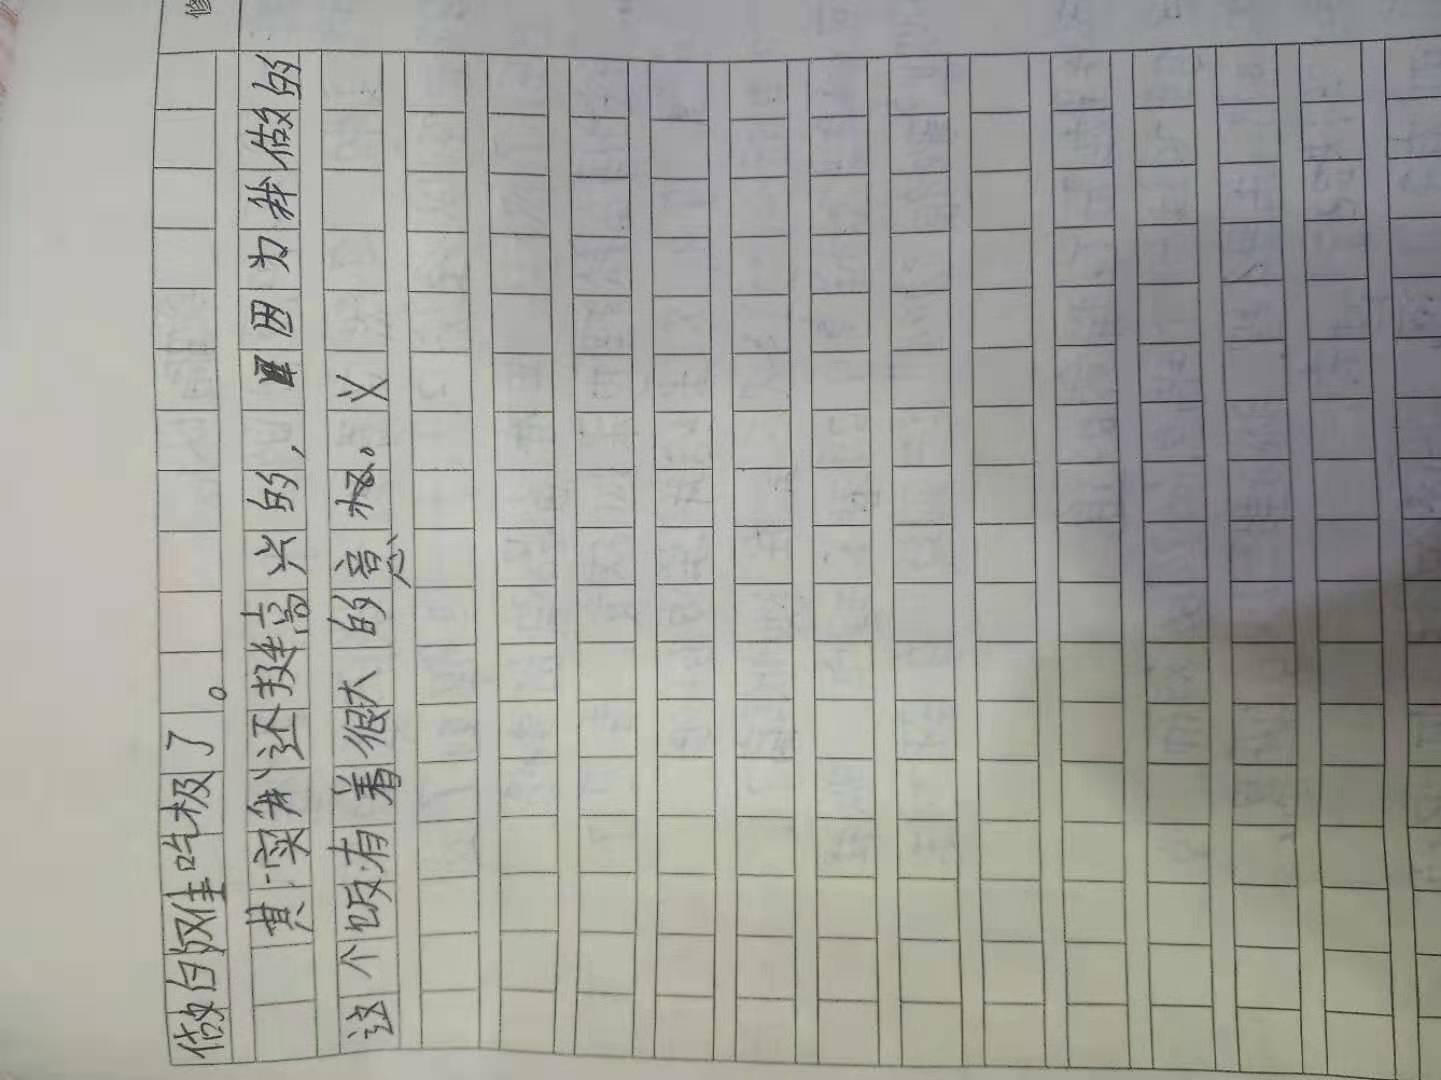 做的难吃极了。
其实我还挺高兴的，因为我做的
这个饭有着很大的意义。